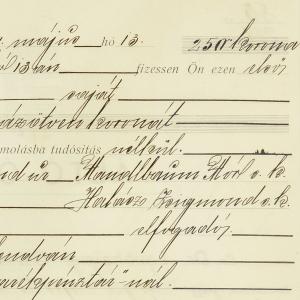 május hó 13. 250 korona
13 án fizessen Ön ezen első
saját
dszötven koronát
omolásba tudósítás nélkül.
nd ur Mandlbaum Mór s. k.
Halász Zsigmond s. k.
elfogadós
endván
arékpénztár"-nál.